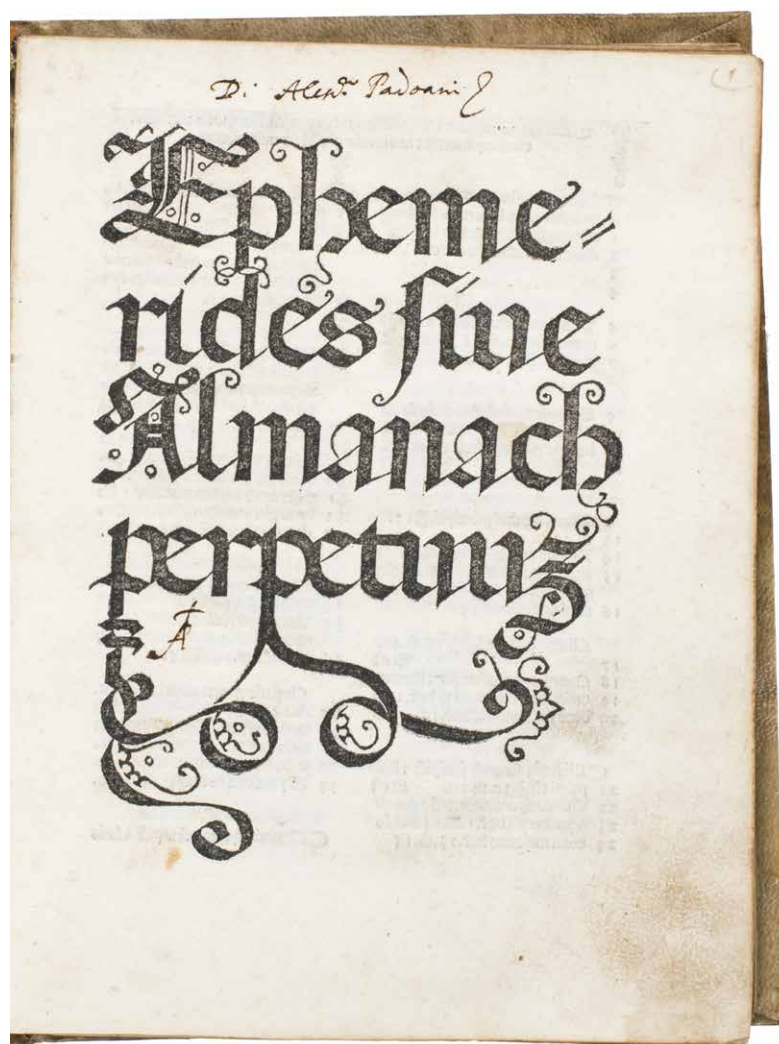 Di Alesdo Padoani
Epheme=
rides siue
Almanach
perpetuuz